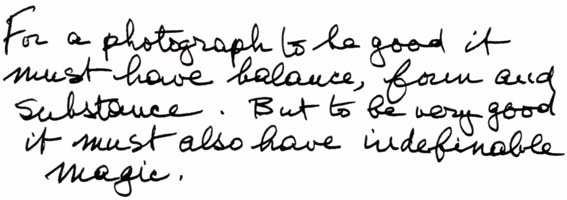 For a photograph to be good it
must have balance, form and
substance. But to be very good
it must also have indefinable
magic.